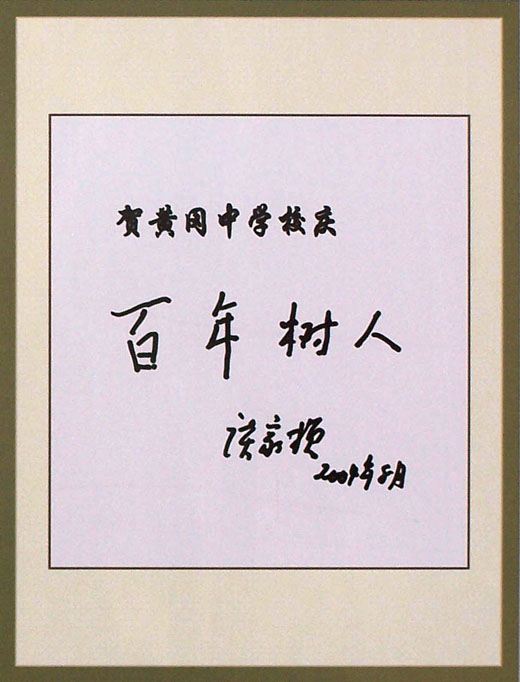 贺黄冈中学校庆
百年树人
2004年8月